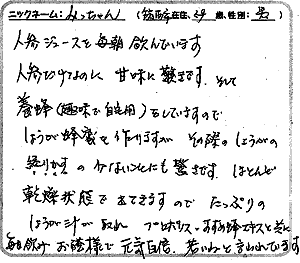 ニックネーム:よっちゃん (在住, 歳、性別:男)
人参ジュースを毎朝飲んでいます
人参だけなのに 甘味に驚きです。そして
養蜂(趣味で自宅用)をしていますので
しょうが蜂蜜も作りますが その際のしょうがの
絞りカスの少ないことにも驚きです。ほとんど
乾燥状態で出てきますので たっぷりの
しょうが汁が取れ プロポリス・すずめ蜂エキスと共に
毎日飲み お陰様で元気自信、若いねと言われています